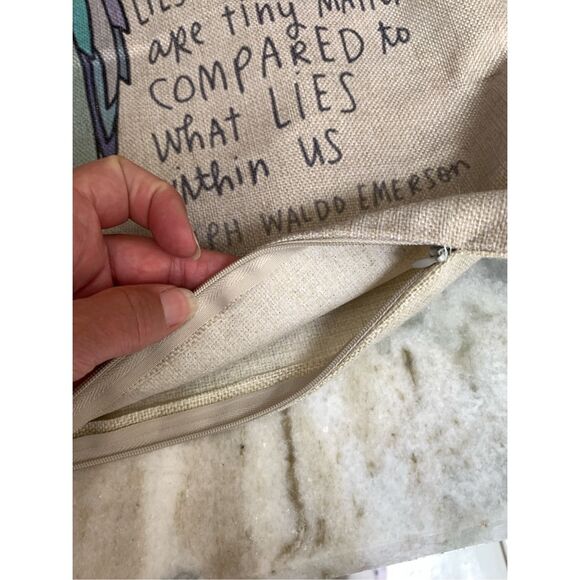 LIES
are tiny MATTE
COMPARED to
what LIES
within US
LPH WALDO EMERSON